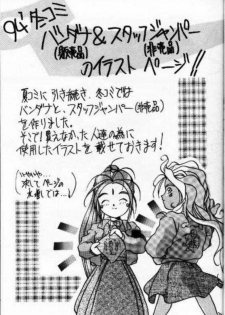 94' 冬コミ
バンダナ & スタッフジャンパー
(販売品) (非売品)
のイラスト ページ!!
夏コミに引き続き、冬コミでは
バンダナと、スタッフジャンパー(非売品)
を作りました。
そこで買えなかった人達の為に
使用したイラストを 載せておきます!